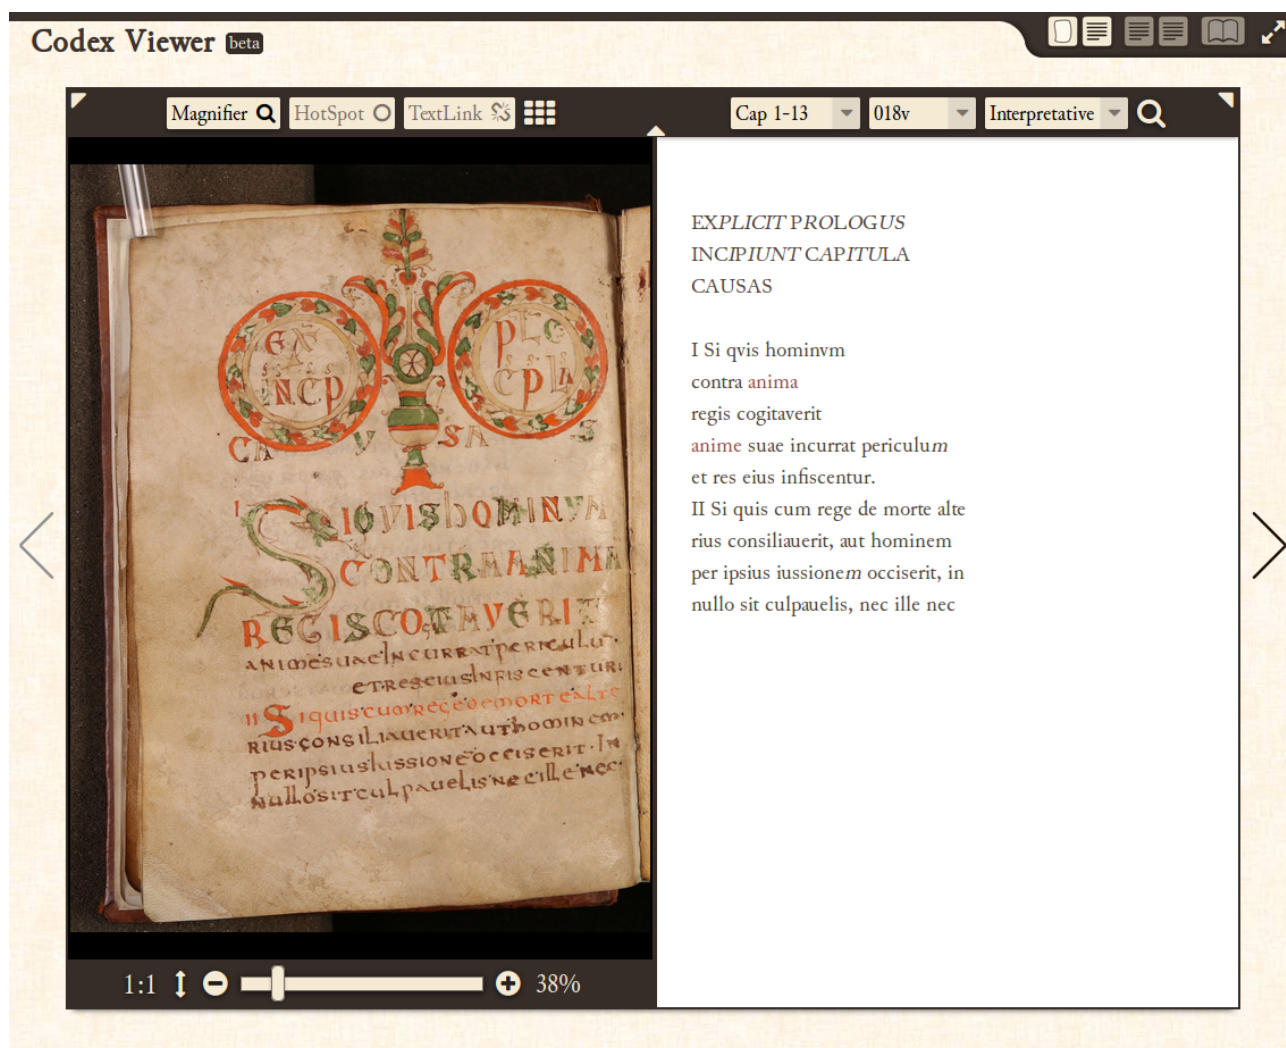 Codex Viewer beta
Magnifier HotSpot TextLink
Cap 1-13 018v Interpretative
INCP
CPLA
CA V SA S
I SIQVIShOMINVM
CONTRAANIMA
ANIMESUAEINCURRATPERICULU
ETRESEIUSINFISCENTUR
II SIQUISCUMREGEDEMORTEALTE
RIUSCONSILIAUERITAUTHOMINEM
PERIPSIUSIUSSIONEOCCISERIT·IN
NULLOSITCULPAUELISNECILLENEC
1:1 38%
EXPLICIT PROLOGUS
INCIPIUNT CAPITULA
CAUSAS
I Si qvis hominvm
contra anima
regis cogitaverit
anime suae incurrat periculum
et res eius infiscentur.
II Si quis cum rege de morte alte
rius consiliauerit, aut hominem
per ipsius iussionem occiserit, in
nullo sit culpauelis, nec ille nec